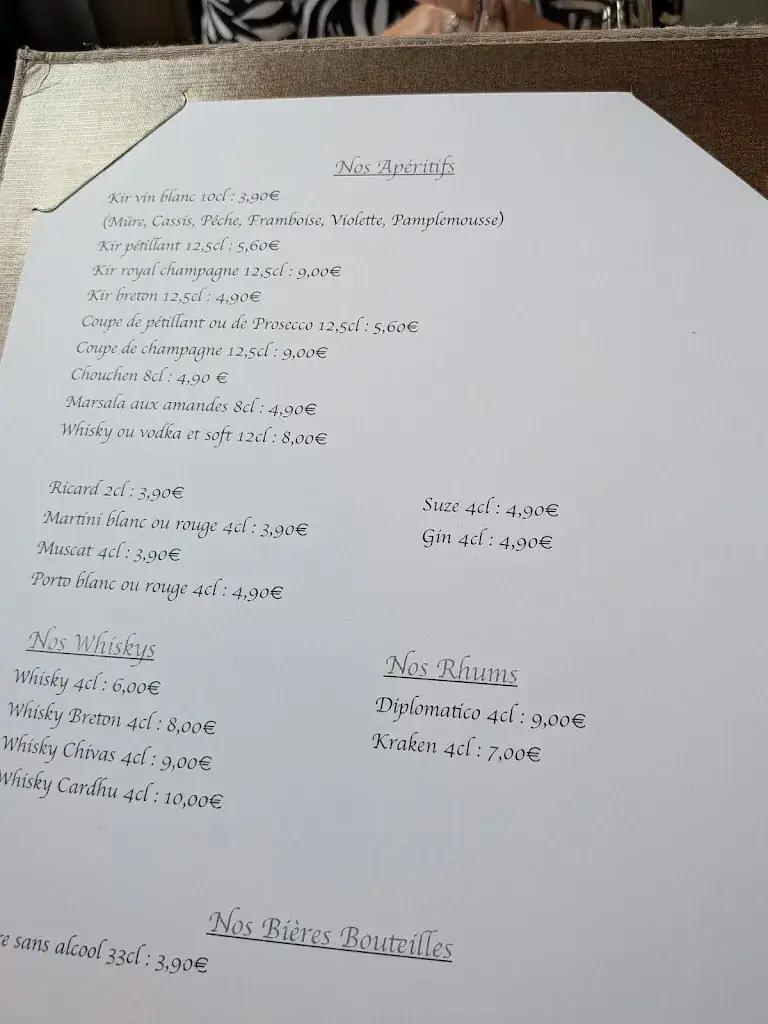 Nos Apéritifs
Kir vin blanc 10cl : 3,90€
(Mûre, Cassis, Pêche, Framboise, Violette, Pamplemousse)
Kir pétillant 12,5cl : 5,60€
Kir royal champagne 12,5cl : 9,00€
Kir breton 12,5cl : 4,90€
Coupe de pétillant ou de Prosecco 12,5cl : 5,60€
Coupe de champagne 12,5cl : 9,00€
Chouchen 8cl : 4,90 €
Marsala aux amandes 8cl : 4,90€
Whisky ou vodka et soft 12cl : 8,00€
Ricard 2cl : 3,90€
Martini blanc ou rouge 4cl : 3,90€
Muscat 4cl : 3,90€
Porto blanc ou rouge 4cl : 4,90€
Suze 4cl : 4,90€
Gin 4cl : 4,90€
Nos Whiskys
Whisky 4cl : 6,00€
Whisky Breton 4cl : 8,00€
Whisky Chivas 4cl : 9,00€
Whisky Cardhu 4cl : 10,00€
Nos Rhums
Diplomatico 4cl : 9,00€
Kraken 4cl : 7,00€
Nos Bières Bouteilles
sans alcool 33cl : 3,90€